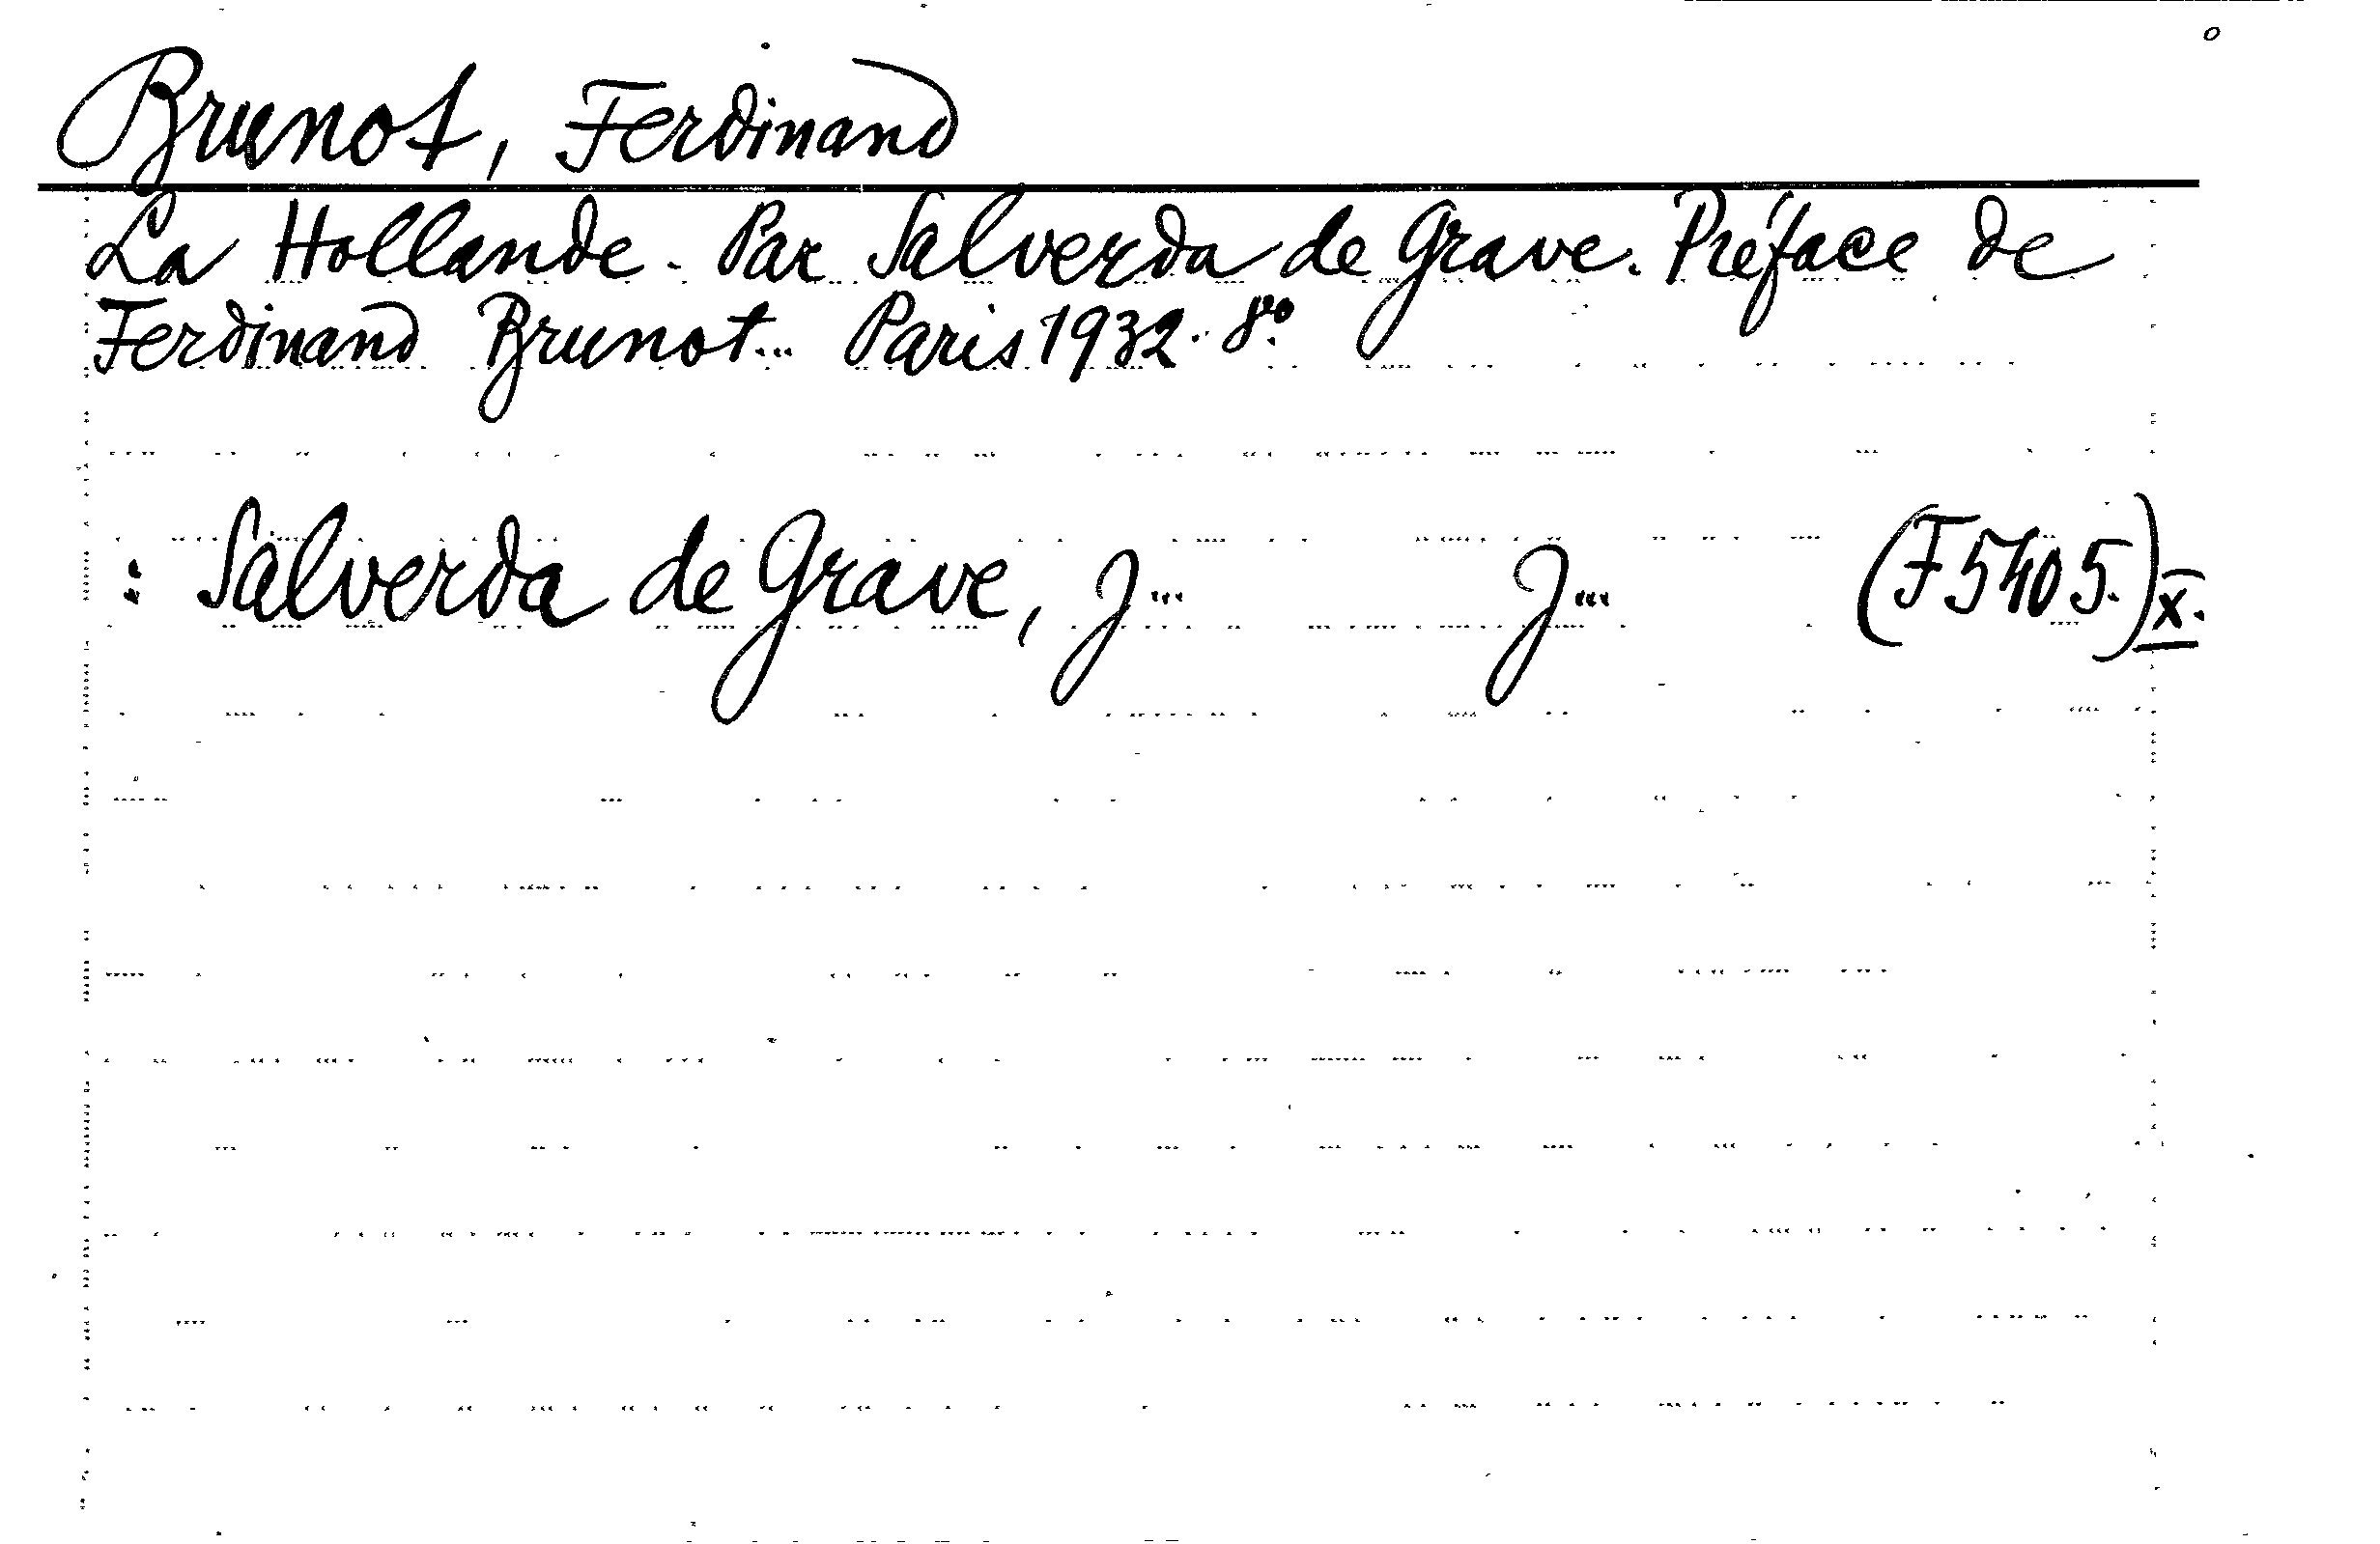 Brunot, Ferdinand
La Hollande. Par Salverda de Grave. Préface de
Ferdinand Brunot... Paris 1932. 8vo.
: Salverda de Grave, J... J... (F5405.) X.